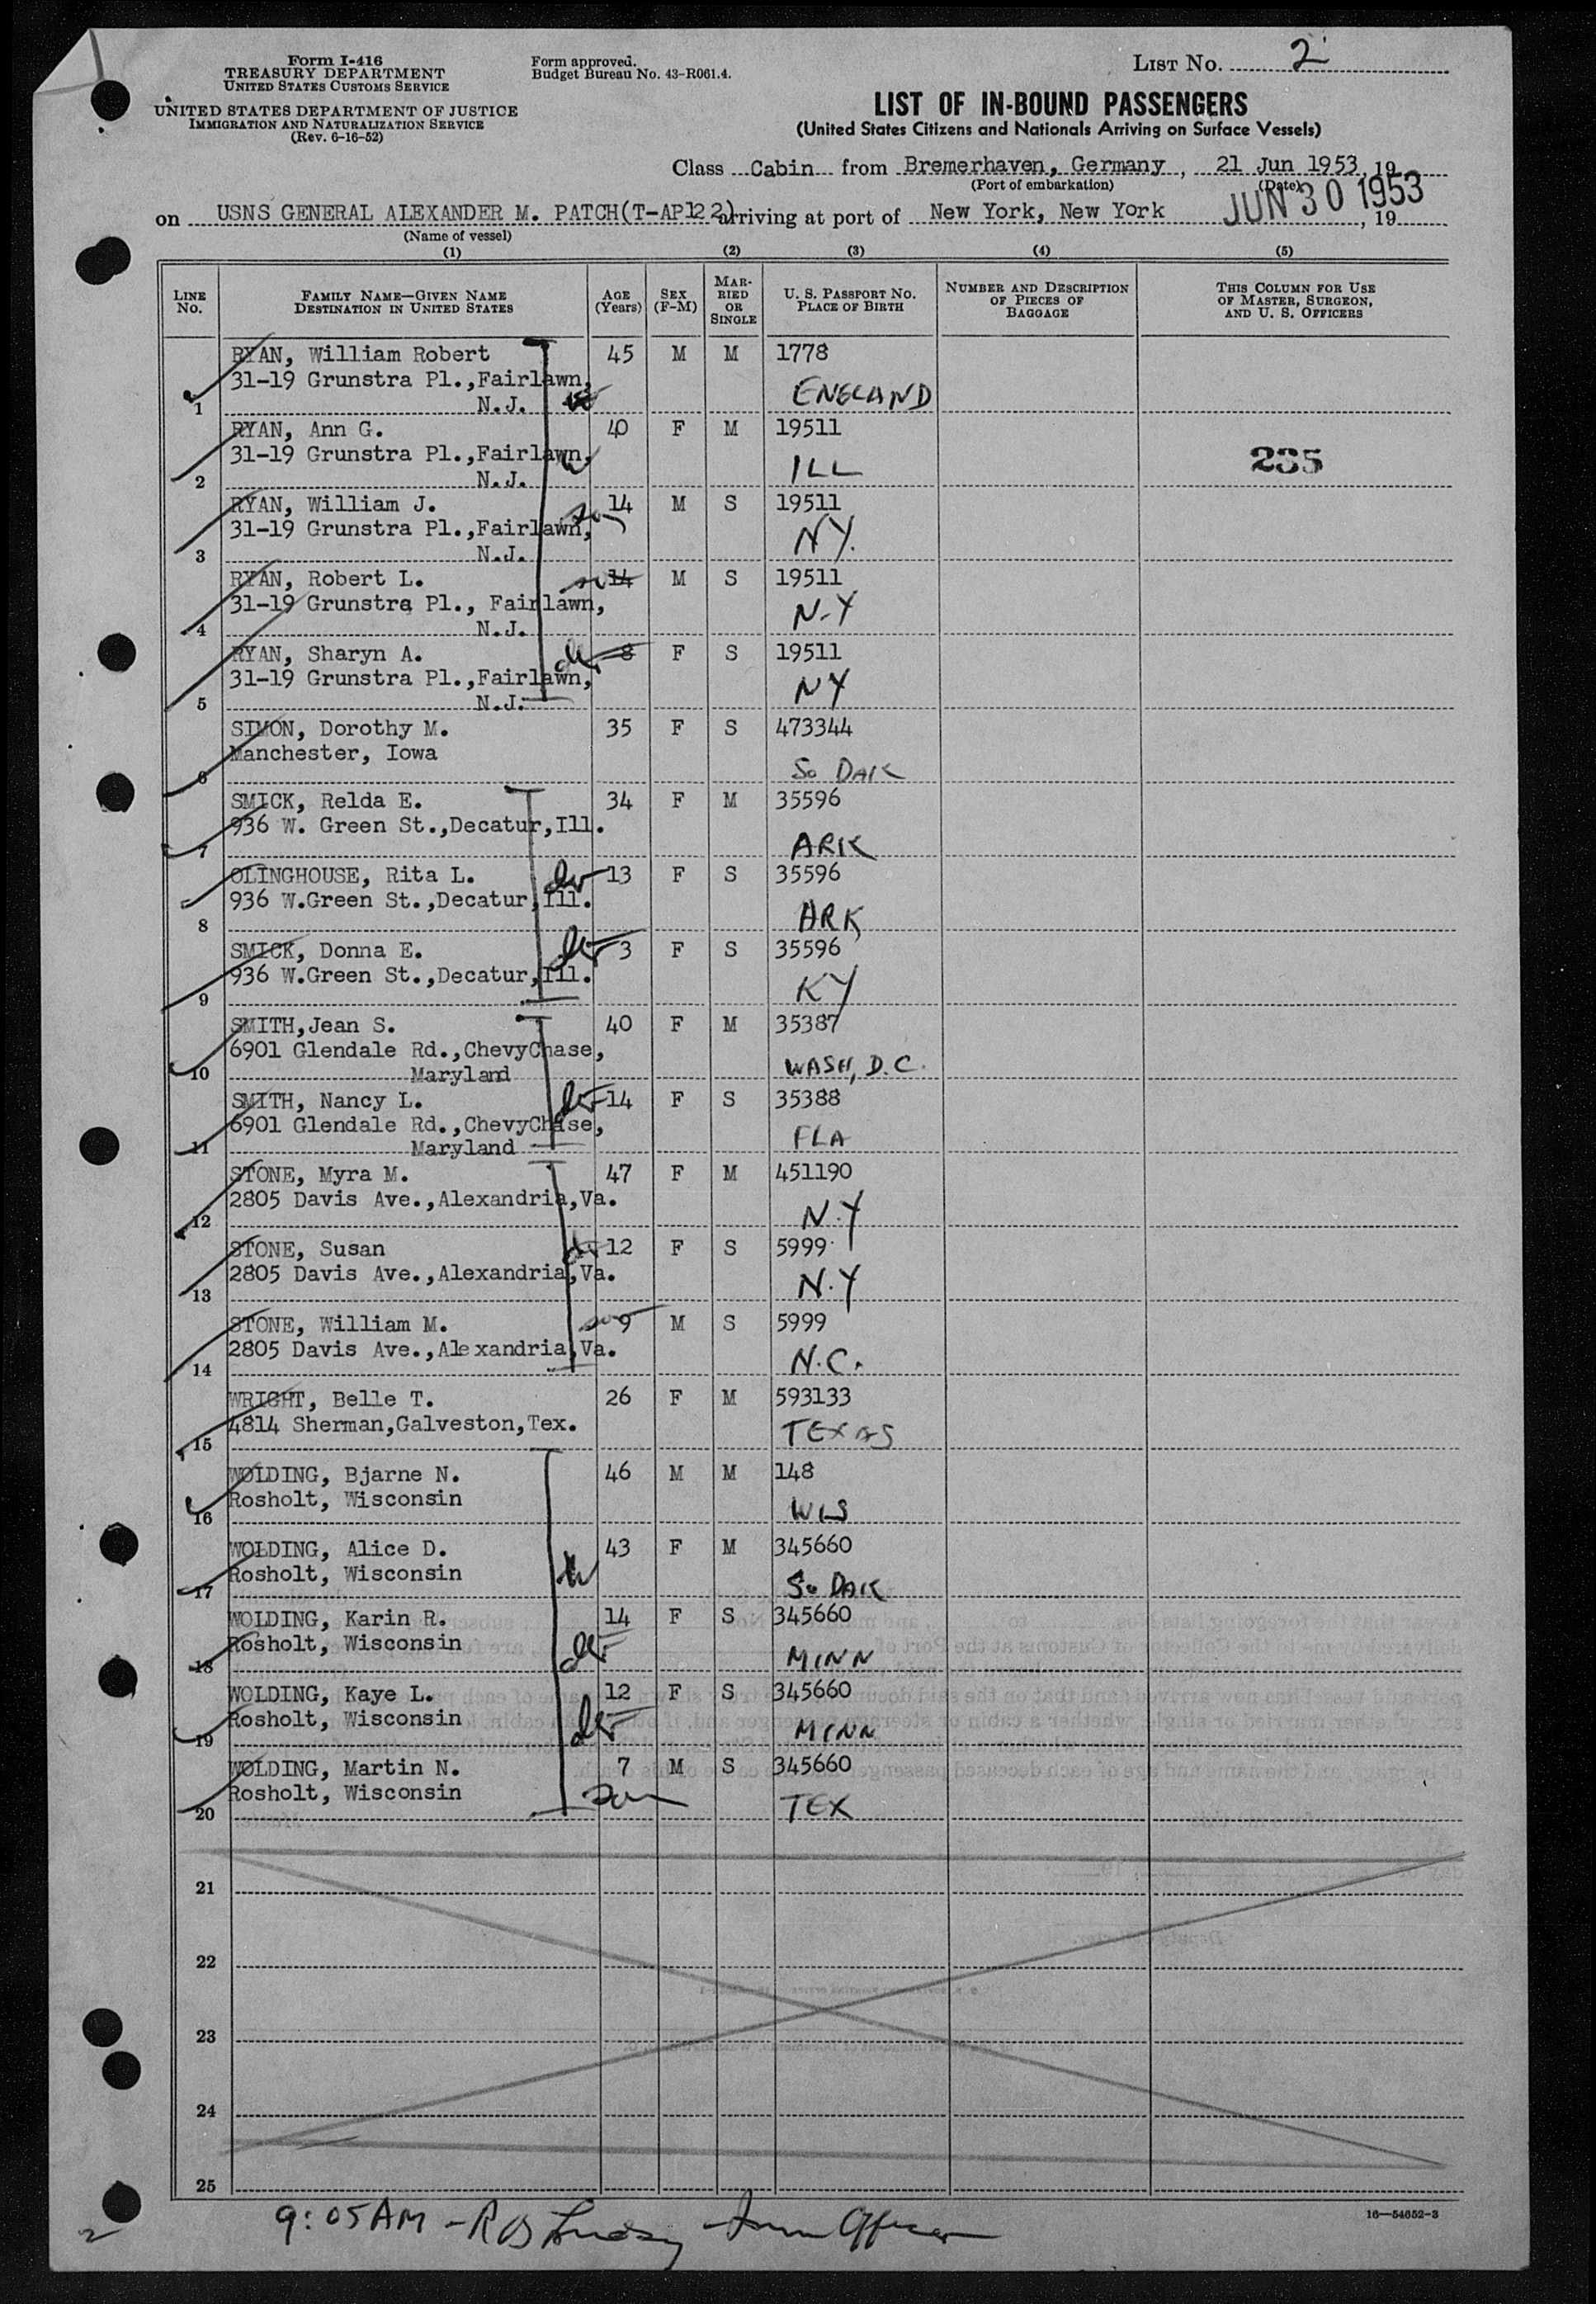 Form I-416
TREASURY DEPARTMENT
UNITED STATES CUSTOMS SERVICE
UNITED STATES DEPARTMENT OF JUSTICE
IMMIGRATION AND NATURALIZATION SERVICE
(Rev. 6-16-52)
Form approved.
Budget Bureau No. 43-R061.4.
LIST NO. 2
LIST OF IN-BOUND PASSENGERS
(United States Citizens and Nationals Arriving on Surface Vessels)
Class Cabin from Bremerhaven, Germany, 21 Jun 1953, 19
(Port of embarkation) (Date)
on USNS GENERAL ALEXANDER M. PATCH(T-AP122) arriving at port of New York, New York JUN 30 1953, 19
(Name of vessel)
(1) (2) (3) (4) (5)
LINE NO. FAMILY NAME—GIVEN NAME DESTINATION IN UNITED STATES AGE (Years) SEX (F-M) MARRIED OR SINGLE U. S. PASSPORT NO. PLACE OF BIRTH NUMBER AND DESCRIPTION OF PIECES OF BAGGAGE THIS COLUMN FOR USE OF MASTER, SURGEON, AND U. S. OFFICERS
RYAN, William Robert 45 M M 1778
31-19 Grunstra Pl.,Fairlawn,
1 N.J. ENGLAND
RYAN, Ann G. 40 F M 19511
31-19 Grunstra Pl.,Fairlawn, W 235
2 N.J. ILL
RYAN, William J. 14 M S 19511
31-19 Grunstra Pl.,Fairlawn, NY.
3 N.J.
RYAN, Robert L. 14 M S 19511
31-19 Grunstra Pl., Fairlawn, N-Y
4 N.J.
RYAN, Sharyn A. 8 F S 19511
31-19 Grunstra Pl.,Fairlawn, NY
5 N.J.
SIMON, Dorothy M. 35 F S 473344
Manchester, Iowa
6 So DAK
SMICK, Relda E. 34 F M 35596
936 W. Green St.,Decatur,Ill.
7 ARK
OLINGHOUSE, Rita L. 13 F S 35596
936 W.Green St.,Decatur,Ill.
8 ARK
SMICK, Donna E. 3 F S 35596
936 W.Green St.,Decatur,Ill.
9 KY
SMITH,Jean S. 40 F M 35387
6901 Glendale Rd.,ChevyChase,
10 Maryland WASH, D.C.
SMITH, Nancy L. 14 F S 35388
6901 Glendale Rd.,ChevyChase,
11 Maryland FLA
STONE, Myra M. 47 F M 451190
2805 Davis Ave.,Alexandria,Va.
12 N.Y
STONE, Susan 12 F S 5999
2805 Davis Ave.,Alexandria,Va.
13 N.Y
STONE, William M. 9 M S 5999
2805 Davis Ave.,Alexandria,Va.
14 N.C.
WRIGHT, Belle T. 26 F M 593133
4814 Sherman,Galveston,Tex.
15 TEXAS
WOLDING, Bjarne N. 46 M M 148
Rosholt, Wisconsin
16 WIS
WOLDING, Alice D. 43 F M 345660
Rosholt, Wisconsin W
17 So DAK
WOLDING, Karin R. 14 F S 345660
Rosholt, Wisconsin
18 MINN
WOLDING, Kaye L. 12 F S 345660
Rosholt, Wisconsin
19 MINN
WOLDING, Martin N. 7 M S 345660
Rosholt, Wisconsin
20 TEX
21
22
23
24
25
9:05AM - Officer
16—54652-3
2